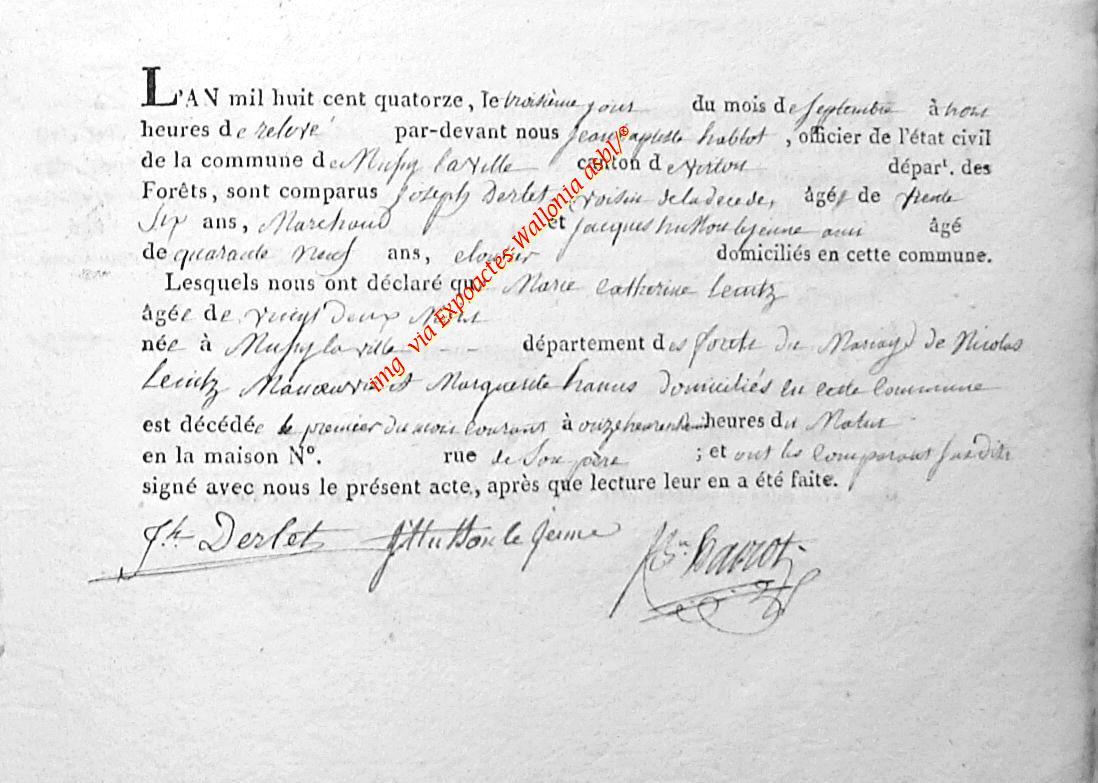 L'AN mil huit cent quatorze, le troisième jour du mois de septembre à trois
heures de relevé par-devant nous Jean Baptiste habbot, officier de l'état civil
de la commune de Mussy la Ville canton de Virton dépar<sup>t</sup>. des
Forêts, sont comparus Joseph Derlet, voisin de la decede, âgés de trente
Six ans, Marchand et jacques hutton le jeune ami âgé
de quarante Neuf ans, cloutier domiciliés en cette commune.
Lesquels nous ont déclaré que Marie Catherine Leintz
âgée de vingt deux
née à Mussy la ville département des forets du Mariage de Nicolas
Leintz Manoeuvre et Marguerite hanus domiciliés en cette Commune
est décédée le premier du mois courant à onze heures du Matin
en la maison N°. rue de Son père ; et ont les Comparant susdits
signé avec nous le présent acte, après que lecture leur en a été faite.
Jh. Derlet JHutton le jeune
img via Expoactes-Wallonia asbl/®